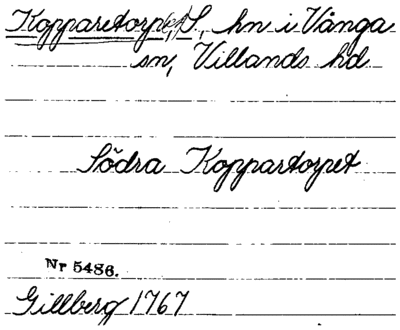 Kopparetorpet, S., hn i Vånga
sn, Villands hd
Södra Koppartorpet
Nr 5486.
Gillberg 1767